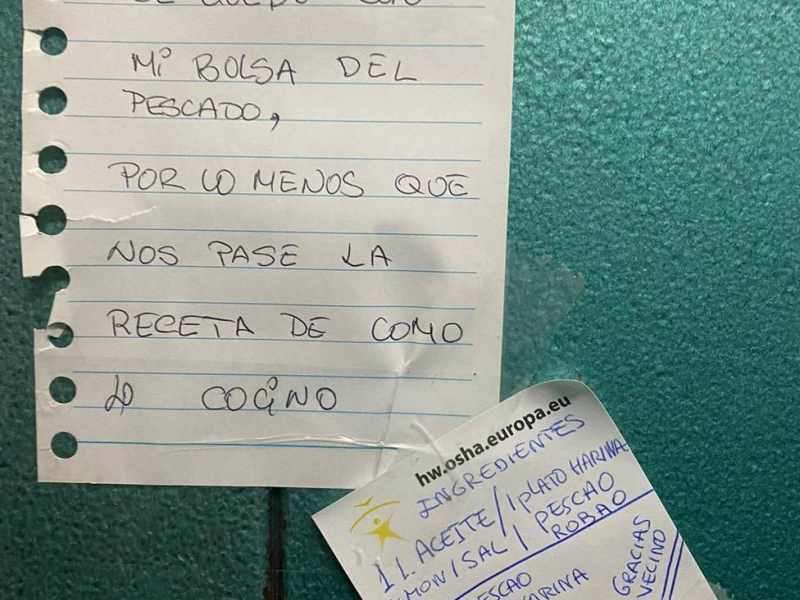 MI BOLSA DEL
PESCADO,
POR LO MENOS QUE
NOS PASE LA
RECETA DE COMO
LO COCINO
hw.osha.europa.eu
INGREDIENTES
1 L. ACEITE / 1 PLATO HARINA
SAL / PESCAO
ROBAO
GRACIAS
VECINO